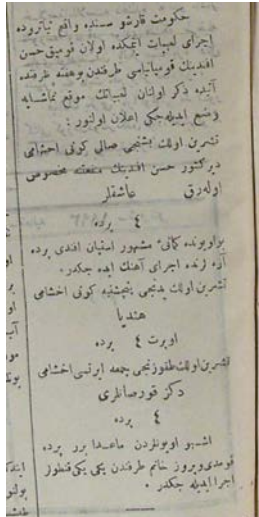 حكومت قارشو سنده واقع تياتروده
اجراى لعبيات ايتمكده اولان قوميق حسن
افندينك قومپانياسى طرفندن بو هفته ظرفنده
آتيده ذكر اولنان لعبياتك موقع تماشايه
وضع ايديله جكى اعلان اولنور :
تشرين اولك بشنجى صالى كونى اخشامى
ديركتور حسن افندينك منفعتنه مخصوص
اوله رق عاشقلر
٤ پرده
بو اويونده كمانى مشهور استپان افندى پرده
آره لرنده اجراى آهنك ايده جكدر .
تشرين اولك يدنجى پنجشنبه كونى اخشامى
هنديا
اوپرت ٤ پرده
تشرين اولك طقوزنجى جمعه ايرتسى اخشامى
دكز قورصانلرى
٤ پرده
اشبو اويونلردن ماعدا برر پرده
قومدى و پروز خانم طرفندن يكى يكى قنطور
اجرا ايديله جكدر .